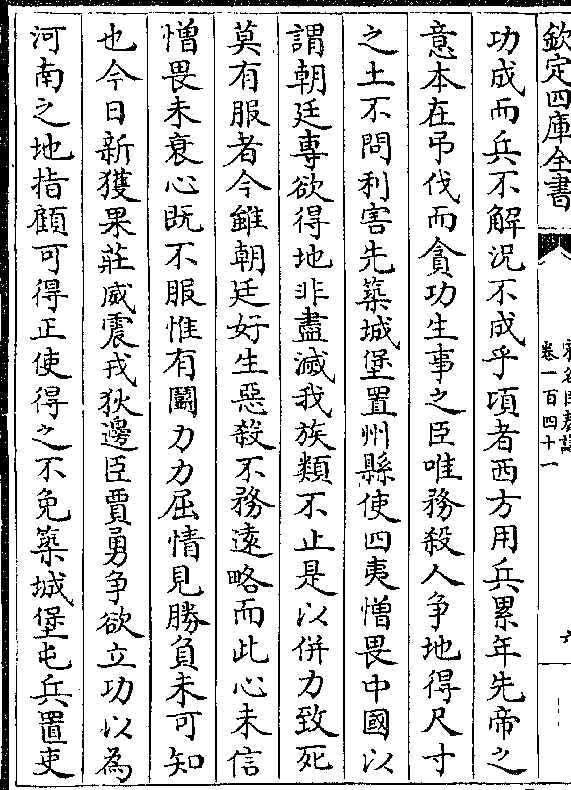 欽定四庫全書
卷一百四十一
六
功成而兵不解況不成乎頃者西方用兵累年先帝之
意本在弔伐而貪功生事之臣唯務殺人争地得尺寸
之土不問利害先築城堡置州縣使四夷憎畏中國以
謂朝廷專欲得地非盡滅我族類不止是以併力致死
莫有服者今雖朝廷好生惡殺不務遠略而此心未信
憎畏未衰心既不服惟有鬭力力屈情見勝負未可知
也今日新獲果莊威震戎狄邊臣賈勇争欲立功以為
河南之地指顧可得正使得之不免築城堡屯兵置吏